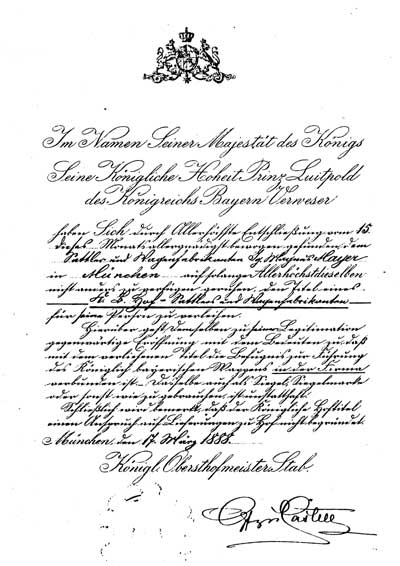 Im Namen Seiner Majestät des Königs
Seine Königliche Hoheit Prinz Luitpold
des Königreichs Bayern Verweser
haben Sich durch Allerhöchste Entschließung vom 15.
dieses Monats allergnädigst bewogen gefunden, dem
Sattler und Wagenfabrikanten Mayer
in München auf so lange Allerhöchstdieselben
nicht anders zu verfügen geruhen, den Titel eines
K. B. Hof-Sattlers und Wagenfabrikanten
für seine Person zu verleihen.
Hierüber geht demselben zu seiner Legitimation
gegenwärtige Eröffnung mit dem Bedeuten zu, daß
mit dem verliehenen Titel die Befugnis zur Führung
des Königlich bayerischen Wappens in der Firma
verbunden ist. Dasselbe auch als Siegel, Siegelmarke
oder sonst wie zu gebrauchen, ist unstatthaft.
Schließlich wird bemerkt, daß der Königliche Hoftitel
einen Anspruch auf Lieferungen zu Hof nicht begründet.
München, den 17. März 1888.
Königl. Obersthofmeister-Stab.